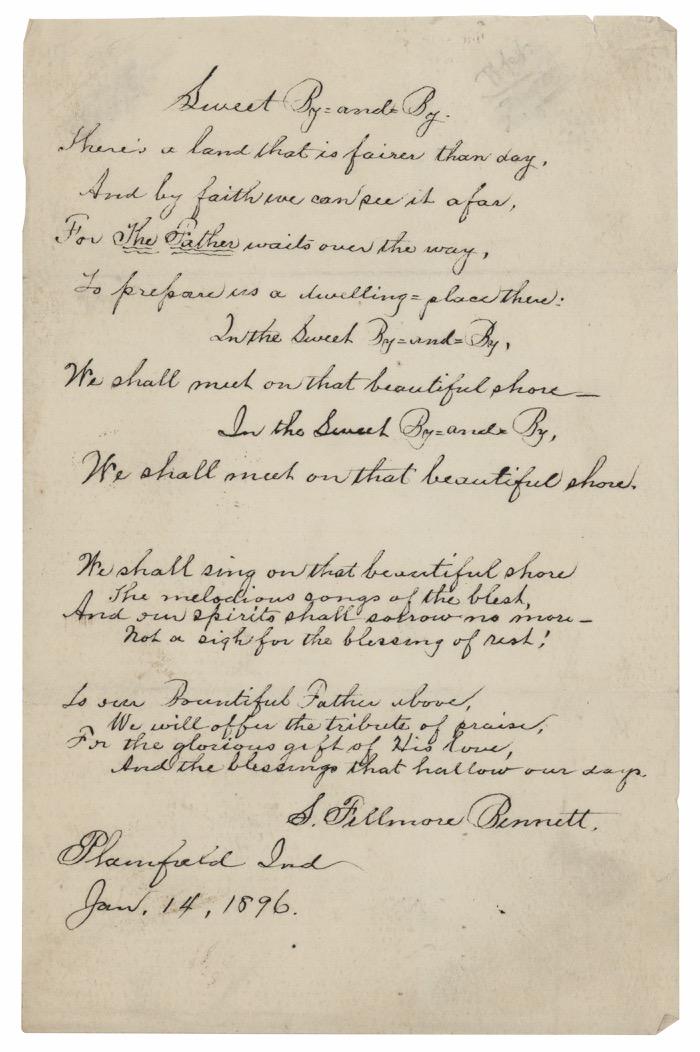 Sweet By=and=By.
There's a land that is fairer than day,
And by faith we can see it afar,
For The Father waits over the way,
To prepare us a dwelling=place there:
In the Sweet By=and=By,
We shall meet on that beautiful shore—
In the Sweet By=and=By,
We shall meet on that beautiful shore.
We shall sing on that beautiful shore
The melodious songs of the blest,
And our spirits shall sorrow no more—
Not a sigh for the blessing of rest!
To our Bountiful Father above,
We will offer the tribute of praise,
For the glorious gift of His love,
And the blessings that hallow our days.
S. Fillmore Bennett.
Plainfield Ind
Jan. 14, 1896.